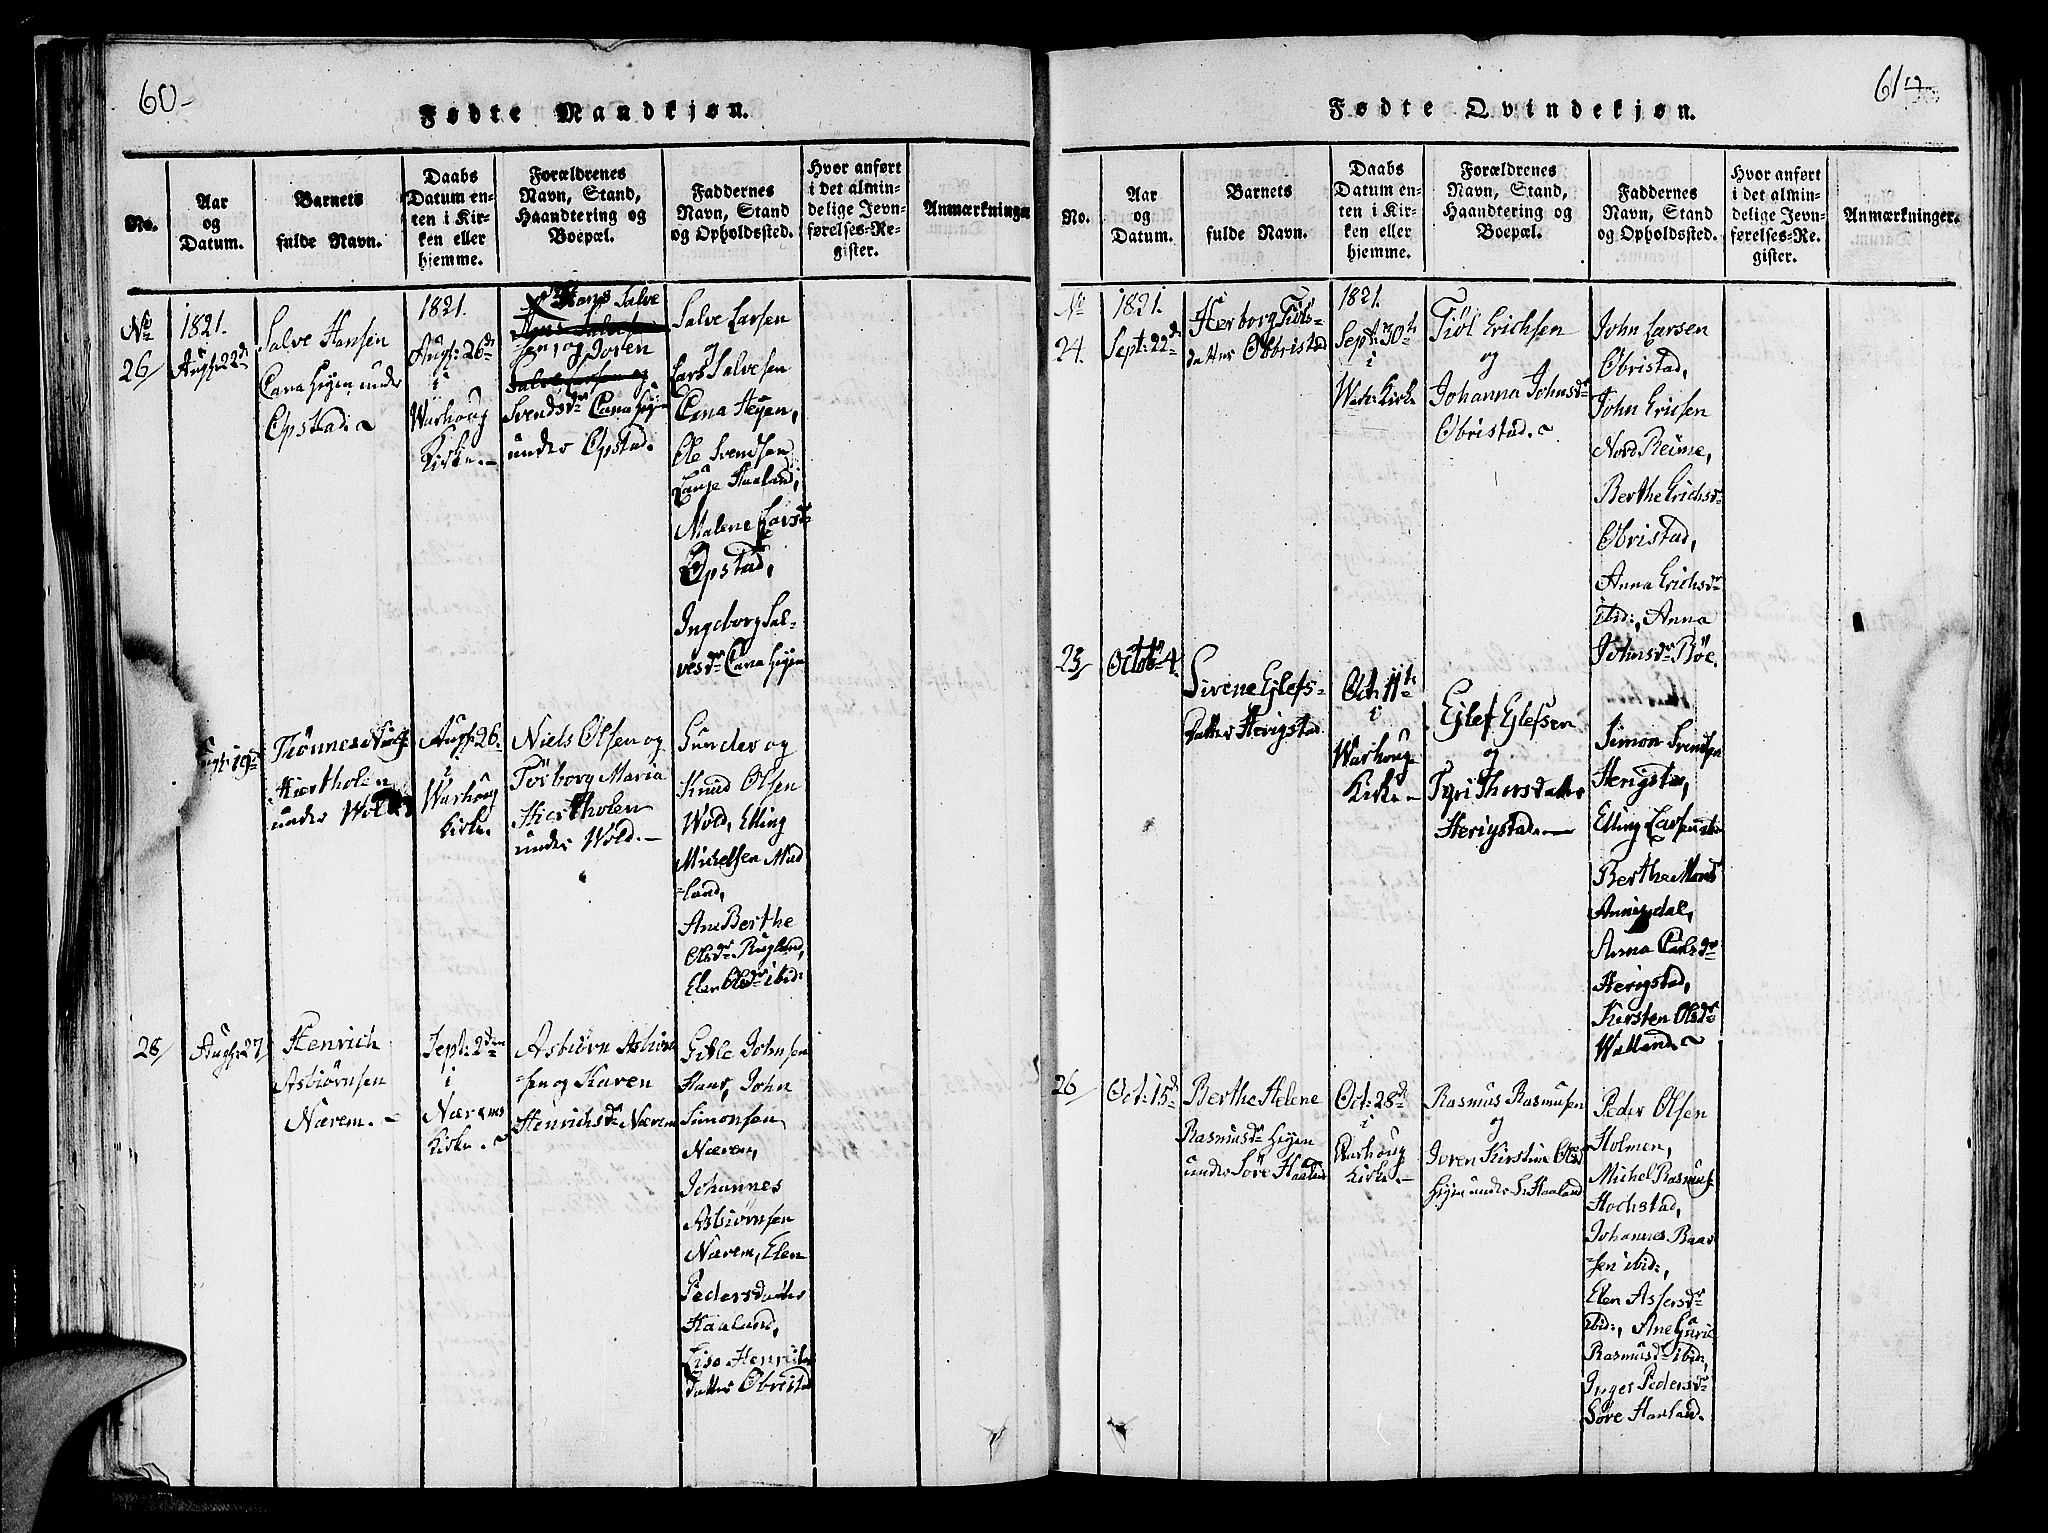 60
Fødte Mandkjøn.
No.
Aar
og
Datum.
Barnets
fulde Navn.
Daabs
Datum en-
ten i Kir-
ken eller
hjemme.
Forældrenes
Navn, Stand,
Haandtering og
Boepæl.
Faddernes
Navn, Stand
og Opholdssted.
Hvor anført
i det almin-
delige Jevn-
førelses-Re-
gister.
Anmærkninger
No
26
1821.
Aug: 22d
Salve Hansen
Cana Heyen under
Opstad
1821.
Aug: 26d
i
Warhoug
Kirke.
Hans Salve
sen, og Joren
Salve Larsen og
Svendsdr Cana Heyen
under Opstad.
Salve Larsen
og
Lars Salvesen
Cana Heyen,
Ole Svendsen
Haaland,
Malene Larsdr
Opstad,
Ingeborg Sal-
vesdr Cana Heyen
Tønnes Niels
Hiertholen
under Wold
Aug: 26.
i
Warhoug
Kirke.
Niels Olsen og
Torborg Maria
Hiertholen
under Wold.
Gunder og
Knud Olsen
Wold, Elling
Michelsen Mid
land,
Ane Berthe
Olsdr Rugland,
Elen Olsdr ibid:
28
Aug: 27
Henrich
Asbiørnsen
Nærem.
Sept: 2den
i
Nærems
Kirke.
Asbiørn Asbiørn
sen og Karen
Henrichsdr Nærem
Gitle Johnsen
Haar, John
Simonsen
Nærem,
Johannes
Asbiørnsen
Nærem, Elen
Pedersdatter
Haaland,
Lisa Henrichs
datter Obrestad
61
Fødte Qvindekjøn.
No.
Aar
og
Datum.
Barnets
fulde Navn.
Daabs
Datum en-
ten i Kir-
ken eller
hjemme.
Forældrenes
Navn, Stand,
Haandtering og
Boepæl.
Faddernes
Navn, Stand
og Opholdssted.
Hvor anført
i det almin-
delige Jevn-
førelses-Re-
gister.
Anmærkninger.
No
24.
1821.
Sept: 22d
Herborg Tiøls-
datter Obristad
1821.
Sept: 30t
i
Warh: Kirke
Tiøl Erichsen
og
Johanna Johnsdr
Obristad.
John Larsen
Obristad,
John Ericsen
Nord Reime,
Berthe Erichsdr
Obristad,
Anna Erichsdr
ibid:, Anna
Johnsdr Bøe.
25
Octob: 4.
Sirene Ejlefs-
datter Herigstad
Oct: 11t
i
Warhoug
Kirke
Ejlef Ejlefsen
og
Tyri Thorsdatter
Herigstad.
Simon Svendsen
Herigstad,
Elling Larsen
Berthe Mons
Anna
Herigstad,
Kirsten Olsdr
Welland.
26
Oct: 15d
Berthe Helene
Rasmusdr Heyen
under Søre Haaland
Oct: 28d
i
Warhoug
Kirke.
Rasmus Rasmusen
og
Joren Kirstine Olsdr
Heyen under S. Haaland
Peder Olsen
Holmen,
Michel Rasmus
Hochstad,
Johannes Baar
sen ibid:,
Elen Assersdr
ibid:, Ane Guri
Rasmusdr ibid:,
Inger Pedersdr
Søre Haaland.